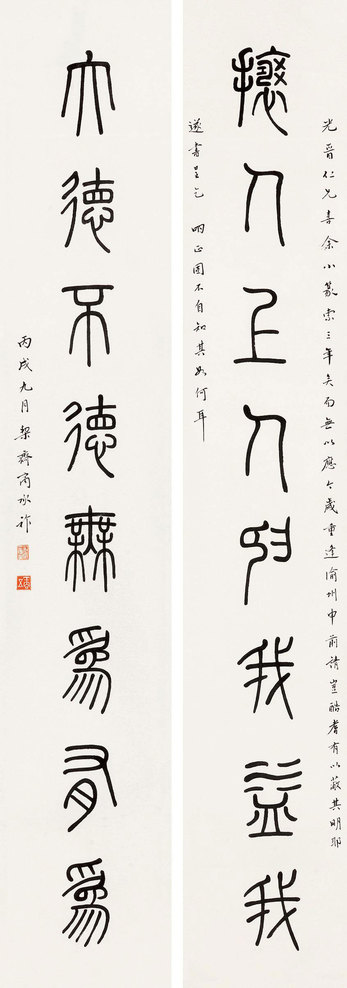 光晉仁兄喜余小篆索三年矣而無以應今歲重逢渝州申前請豈酷耆有以蔽其明耶
攘人上人我益我
遂書呈乞 哂正固不自知其如何耳
大德不德無爲有爲
丙戌九月契齋商承祚